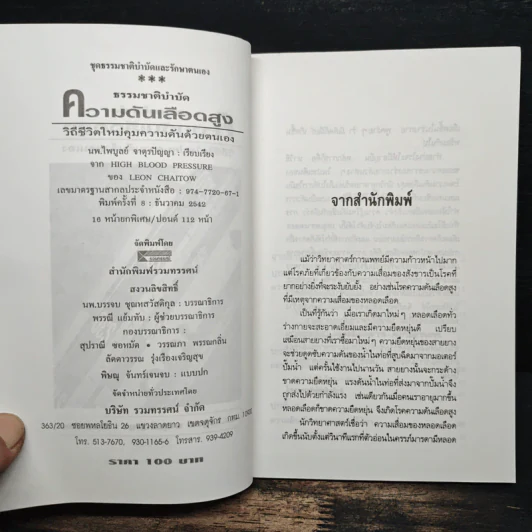 ชุดธรรมชาติบำบัดและรักษาตนเอง
***
ธรรมชาติบำบัด
ความดันเลือดสูง
วิถีชีวิตใหม่คุมความดันด้วยตนเอง
นพ.ไพบูลย์ จาตุรปัญญา : เรียบเรียง
จาก HIGH BLOOD PRESSURE
ของ LEON CHAITOW
เลขมาตรฐานสากลประจำหนังสือ : 974-7720-67-1
พิมพ์ครั้งที่ 8 : ธันวาคม 2542
16 หน้ายกพิเศษ/ปอนด์ 112 หน้า
จัดพิมพ์โดย
สำนักพิมพ์รวมทรรศน์
สงวนลิขสิทธิ์
นพ.บรรจบ ชุณหสวัสดิกุล : บรรณาธิการ
พรรณี แย้มทับ : ผู้ช่วยบรรณาธิการ
กองบรรณาธิการ :
สุปราณี ขอหมัด • วรรณภา พรรณกลิ่น
ลัดดาวรรณ รุ่งเรืองเจริญสุข
พิษณุ จันทร์เจนจบ : แบบปก
จัดจำหน่ายทั่วประเทศโดย
บริษัท รวมทรรศน์ จำกัด
363/20 ซอยพหลโยธิน 26 แขวงลาดยาว เขตจตุจักร กทม. 10900
โทร. 513-7670, 930-1165-6 โทรสาร. 939-4209
ราคา 100 บาท
จากสำนักพิมพ์
แม้ว่าวิทยาศาสตร์การแพทย์มีความก้าวหน้าไปมาก
แต่โรคภัยที่เกี่ยวข้องกับความเสื่อมของสังขารเป็นโรคที่
ยากอย่างยิ่งที่จะระงับยับยั้ง อย่างเช่นโรคความดันเลือดสูง
ที่มีเหตุจากความเสื่อมของหลอดเลือด
เป็นที่รู้กันว่า เมื่อเราเกิดมาใหม่ๆ หลอดเลือดทั่ว
ร่างกายจะสะอาดเอี่ยมและมีความยืดหยุ่นดี เปรียบ
เสมือนสายยางที่เราซื้อมาใหม่ๆ ความยืดหยุ่นของสายยาง
จะช่วยดูดซับความดันของน้ำในท่อที่สูบฉีดมาจากมอเตอร์
ปั๊มน้ำ แต่ครั้นใช้งานไปนานวัน สายยางนั้นจะกระด้าง
ขาดความยืดหยุ่น แรงดันน้ำในท่อที่ส่งมาจากปั๊มน้ำจึง
ถูกส่งไปด้วยกำลังแรง เช่นเดียวกันเมื่อคนเราอายุมากขึ้น
หลอดเลือดก็ขาดความยืดหยุ่น จึงเกิดโรคความดันเลือดสูง
นักวิทยาศาสตร์เชื่อว่า ความเสื่อมของหลอดเลือด
เกิดขึ้นนับตั้งแต่วินาทีแรกที่ตัวอ่อนในครรภ์มารดามีหลอด